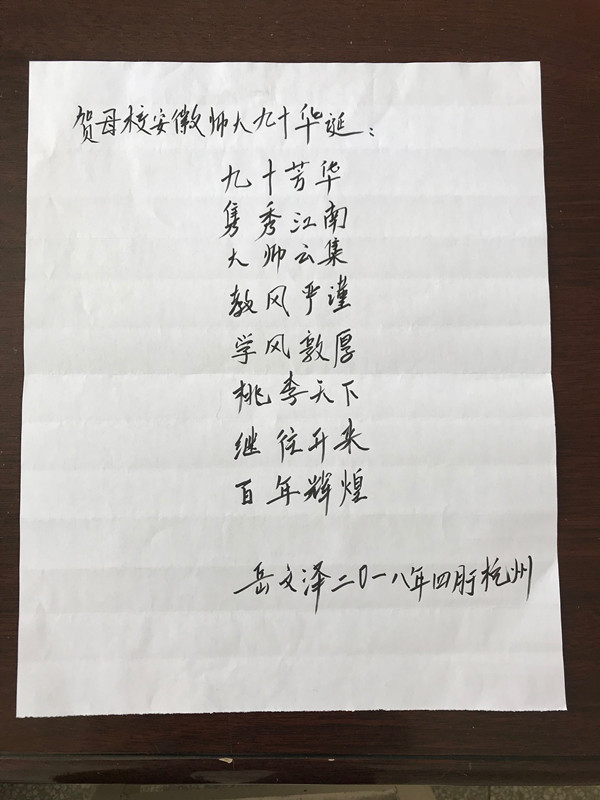 贺母校安徽师大九十华诞：
九十芳华
隽秀江南
大师云集
教风严谨
学风敦厚
桃李天下
继往开来
百年辉煌
岳文泽二〇一八年四月于杭州